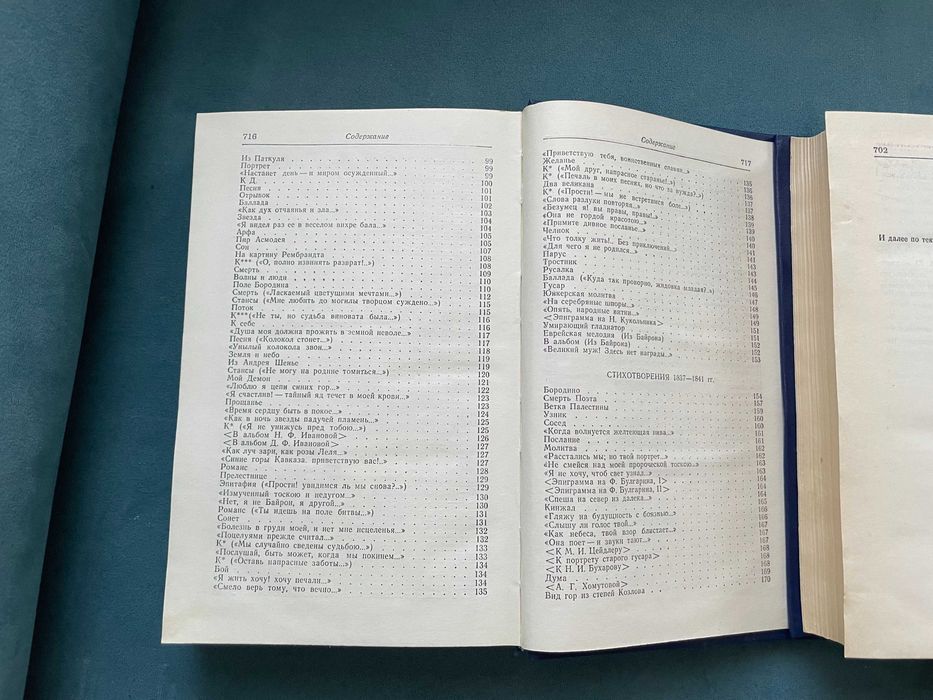 716 Содержание
Из Паткуля 99
Портрет 99
«Настанет день — и миром осужденный» 99
К Д. 100
Песня 101
Отрывок 101
Баллада 102
«Как дух отчаянья и зла...» 103
Звезда 104
«Я видел раз ее в веселом вихре бала...» 104
Арфа 105
Пир Асмодея 105
Сон 107
На картину Рембрандта 108
К*** («О, полно извинять разврат!..») 108
Смерть 109
Волны и люди 110
Поле Бородина 110
Смерть («Ласкаемый цветущими мечтами...») 112
Стансы («Мне любить до могилы творцом суждено...») 115
Поток 115
К*** («Не ты, но судьба виновата была...») 116
К себе 116
«Душа моя должна прожить в земной неволе...» 117
Песня («Колокол стонет...») 117
«Унылый колокола звон...» 118
Земля и небо 119
Из Андрея Шенье 119
Стансы («Не могу на родине томиться...») 120
Мой Демон 121
«Люблю я цепи синих гор...» 122
«Я счастлив! — тайный яд течет в моей крови...» 123
Прощанье 123
«Время сердцу быть в покое...» 124
«Как в ночь звезды падучей пламень...» 125
К* («Я не унижусь пред тобою...») 125
<В альбом Н. Ф. Ивановой> 126
<В альбом Д. Ф. Ивановой> 127
«Как луч зари, как розы Леля...» 127
«Синие горы Кавказа, приветствую вас!..» 127
Романс 128
Прелестнице 129
Эпитафия («Прости! увидимся ль мы снова?..») 129
«Измученный тоскою и недугом...» 130
«Нет, я не Байрон, я другой...» 130
Романс («Ты идешь на поле битвы...») 131
Сонет 131
«Болезнь в груди моей, и нет мне исцеленья...» 132
«Поцелуями прежде считал...» 132
К* («Мы случайно сведены судьбою...») 133
«Послушай, быть может, когда мы покинем...» 133
К* («Оставь напрасные заботы...») 134
Бой 134
«Я жить хочу! хочу печали...» 134
«Смело верь тому, что вечно...» 135
Содержание 717
«Приветствую тебя, воинственных славян...» 135
Желанье 135
К* («Мой друг, напрасное старанье!..») 136
К* («Печаль в моих песнях, но что за нужда?..») 136
Два великана 137
К* («Прости! — мы не встретимся боле...») 137
«Слова разлуки повторяя...» 138
«Безумец я! вы правы, правы!..» 138
«Она не гордой красотою...» 139
«Примите дивное посланье...» 139
Челнок 140
«Что толку жить!.. Без приключений...» 140
«Для чего я не родился...» 141
Парус 141
Тростник 141
Русалка 143
Баллада («Куда так проворно, жидовка младая?..») 144
Гусар 145
Юнкерская молитва 146
«На серебряные шпоры...» 147
«Опять, народные витии...» 148
<Эпиграмма на Н. Кукольника> 149
Умирающий гладиатор 151
Еврейская мелодия (Из Байрона) 151
В альбом (Из Байрона) 152
«Великий муж! Здесь нет награды...» 153
СТИХОТВОРЕНИЯ 1837—1841 гг.
Бородино 154
Смерть Поэта 157
Ветка Палестины 159
Узник 160
Сосед 160
«Когда волнуется желтеющая нива...» 161
Послание 161
Молитва 161
«Расстались мы; но твой портрет...» 162
«Не смейся над моей пророческой тоскою...» 162
«Я не хочу, чтоб свет узнал...» 163
<Эпиграмма на Ф. Булгарина, I> 163
<Эпиграмма на Ф. Булгарина, II> 164
«Спеша на север из далека...» 164
Кинжал 164
«Гляжу на будущность с боязнью...» 165
«Слышу ли голос твой...» 166
«Как небеса, твой взор блистает...» 166
«Она поет — и звуки тают...» 167
<К М. И. Цейдлеру> 167
<К портрету старого гусара> 168
<К Н. И. Бухарову> 168
Дума 168
<А. Г. Хомутовой> 169
Вид гор из степей Козлова 170
702
И далее по тек